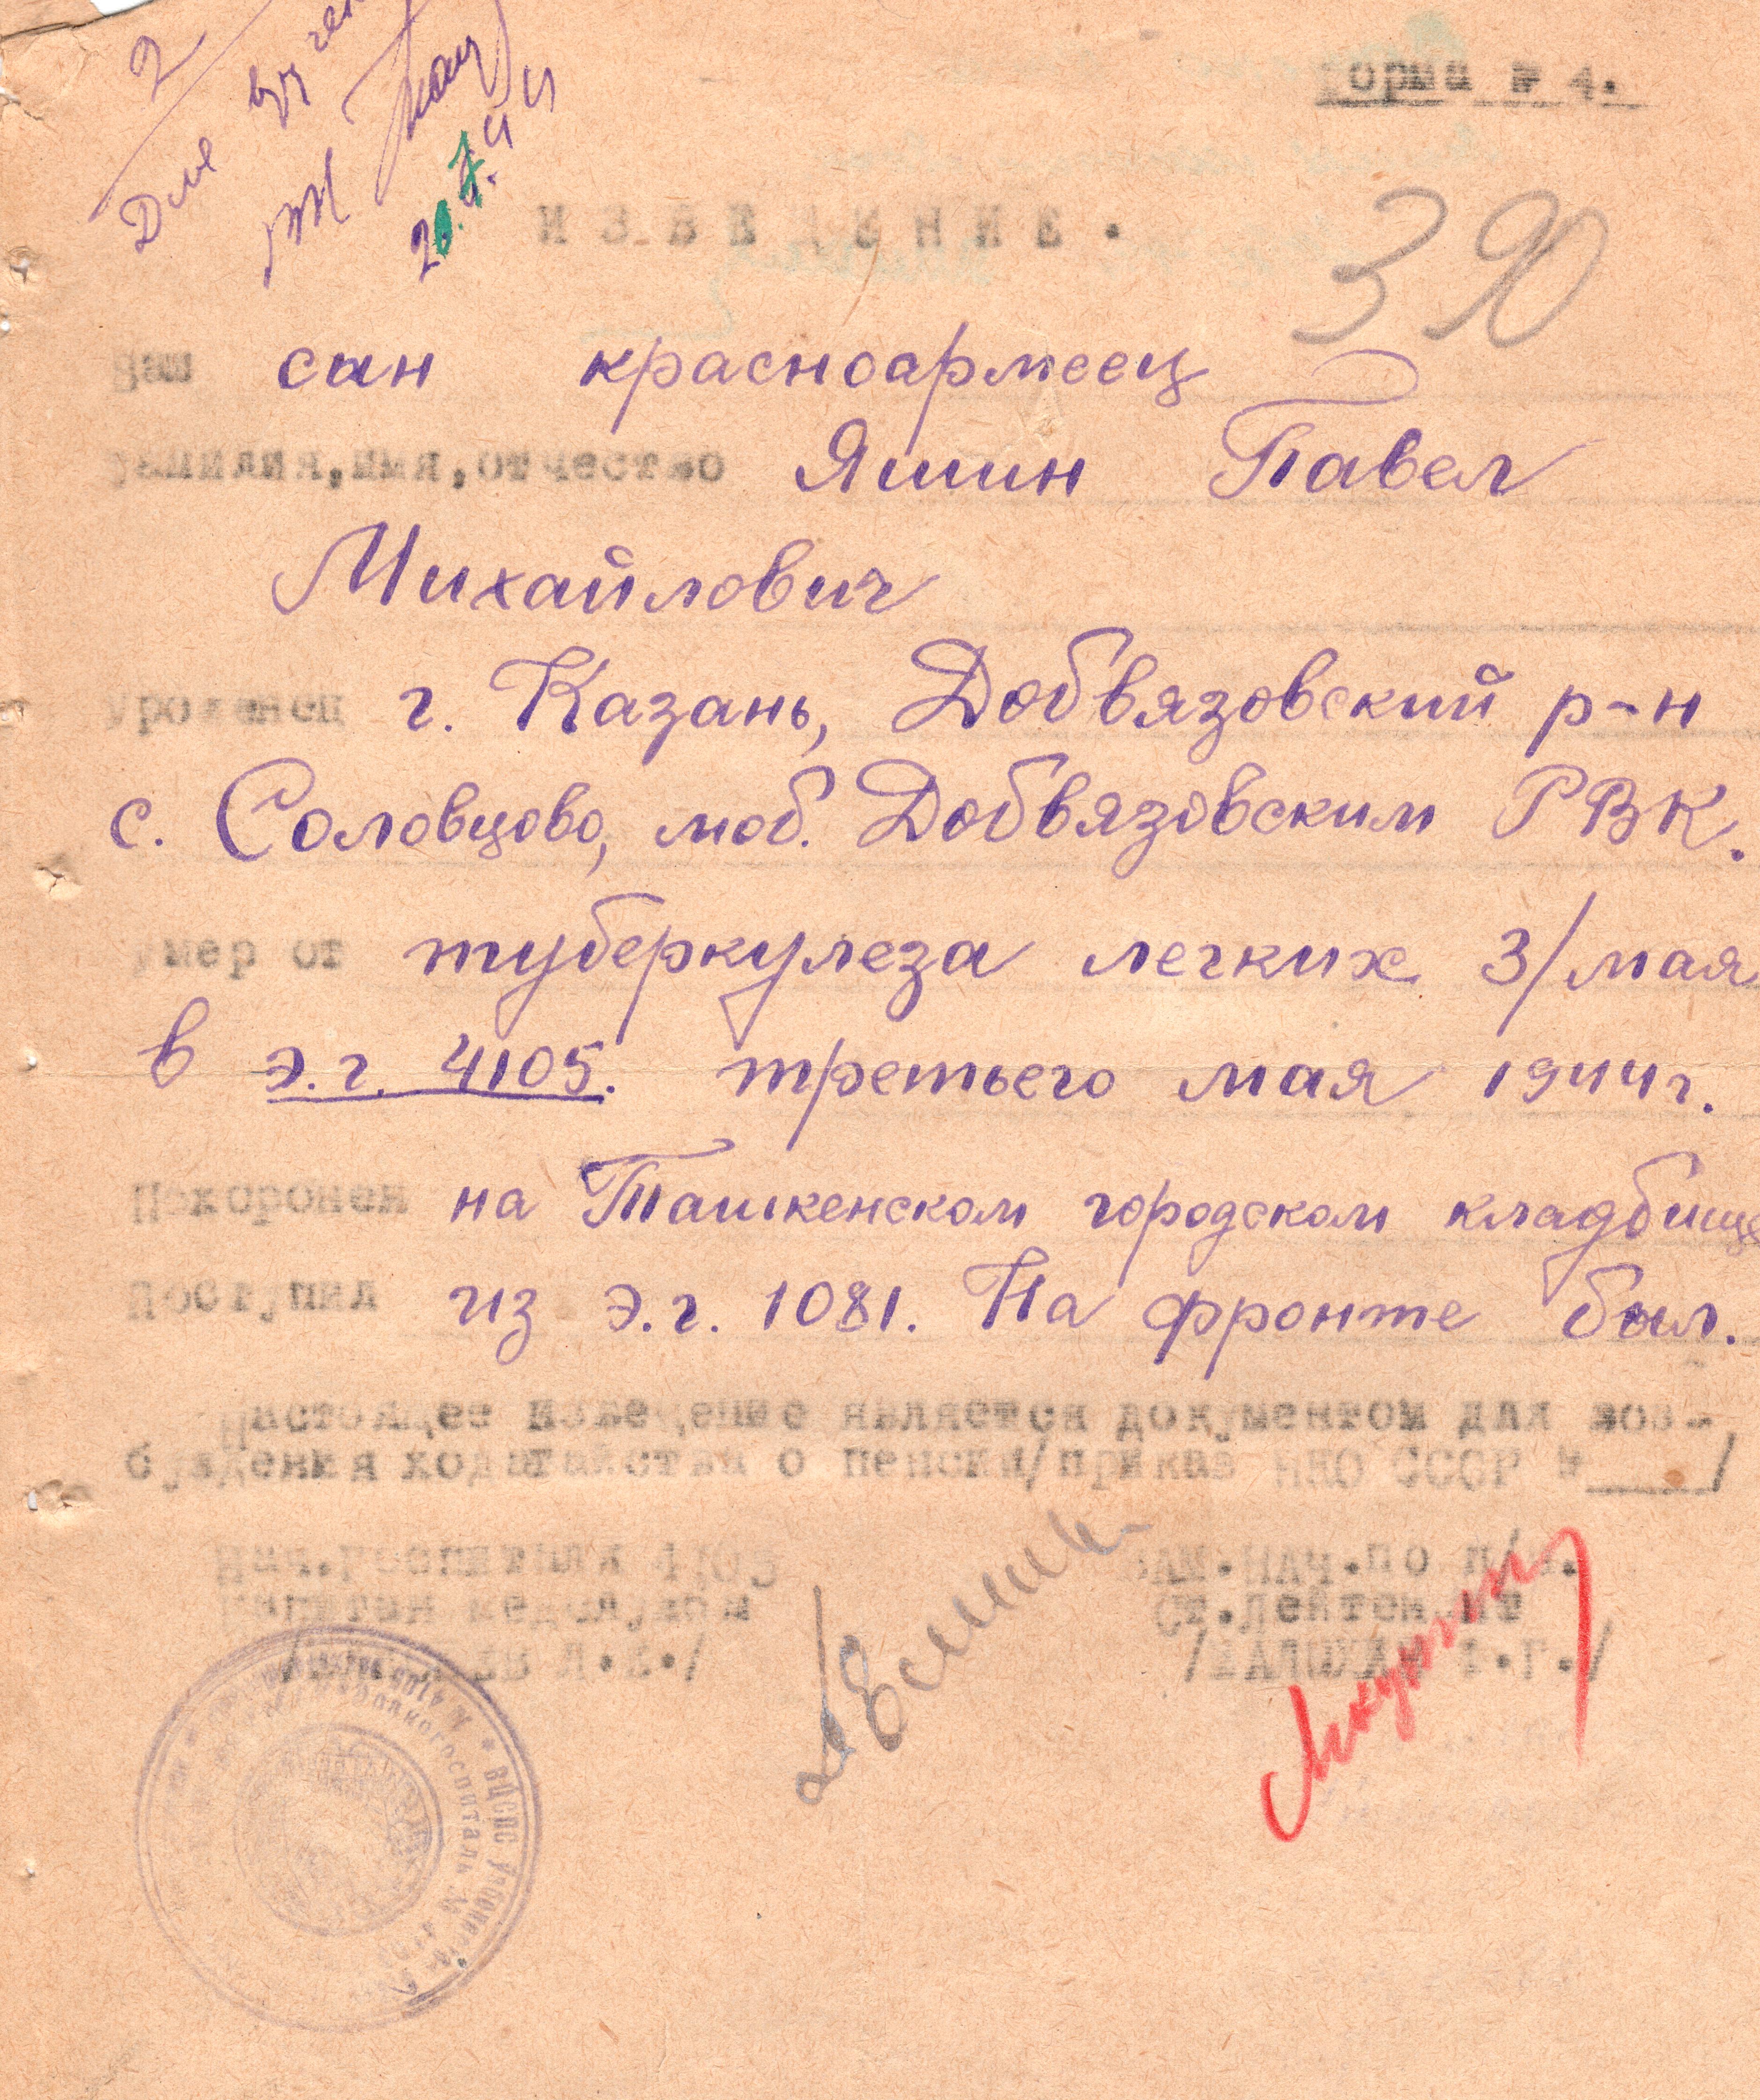 2
Для
20.7.44
Форма № 4.
ИЗВЕЩЕНИЕ.
390
Ваш сын красноармеец
фамилия, имя, отчество Яшин Павел
Михайлович
уроженец г. Казань, Добвязовский р-н
с. Соловцово, моб. Добвязовским РВК.
умер от туберкулеза легких 3/мая
в э.г. 4105. третьего мая 1944г.
Похоронен на Ташкенском городском кладбище
Поступил из э.г. 1081. На фронте был.
Настоящее извещение является документом для воз-
буждения ходатайства о пенсии/приказ НКО СССР №____/
Нач.госпиталя 4105
Зам.нач.по п/ч.
Капитан медслужбы
Ст.лейтенант